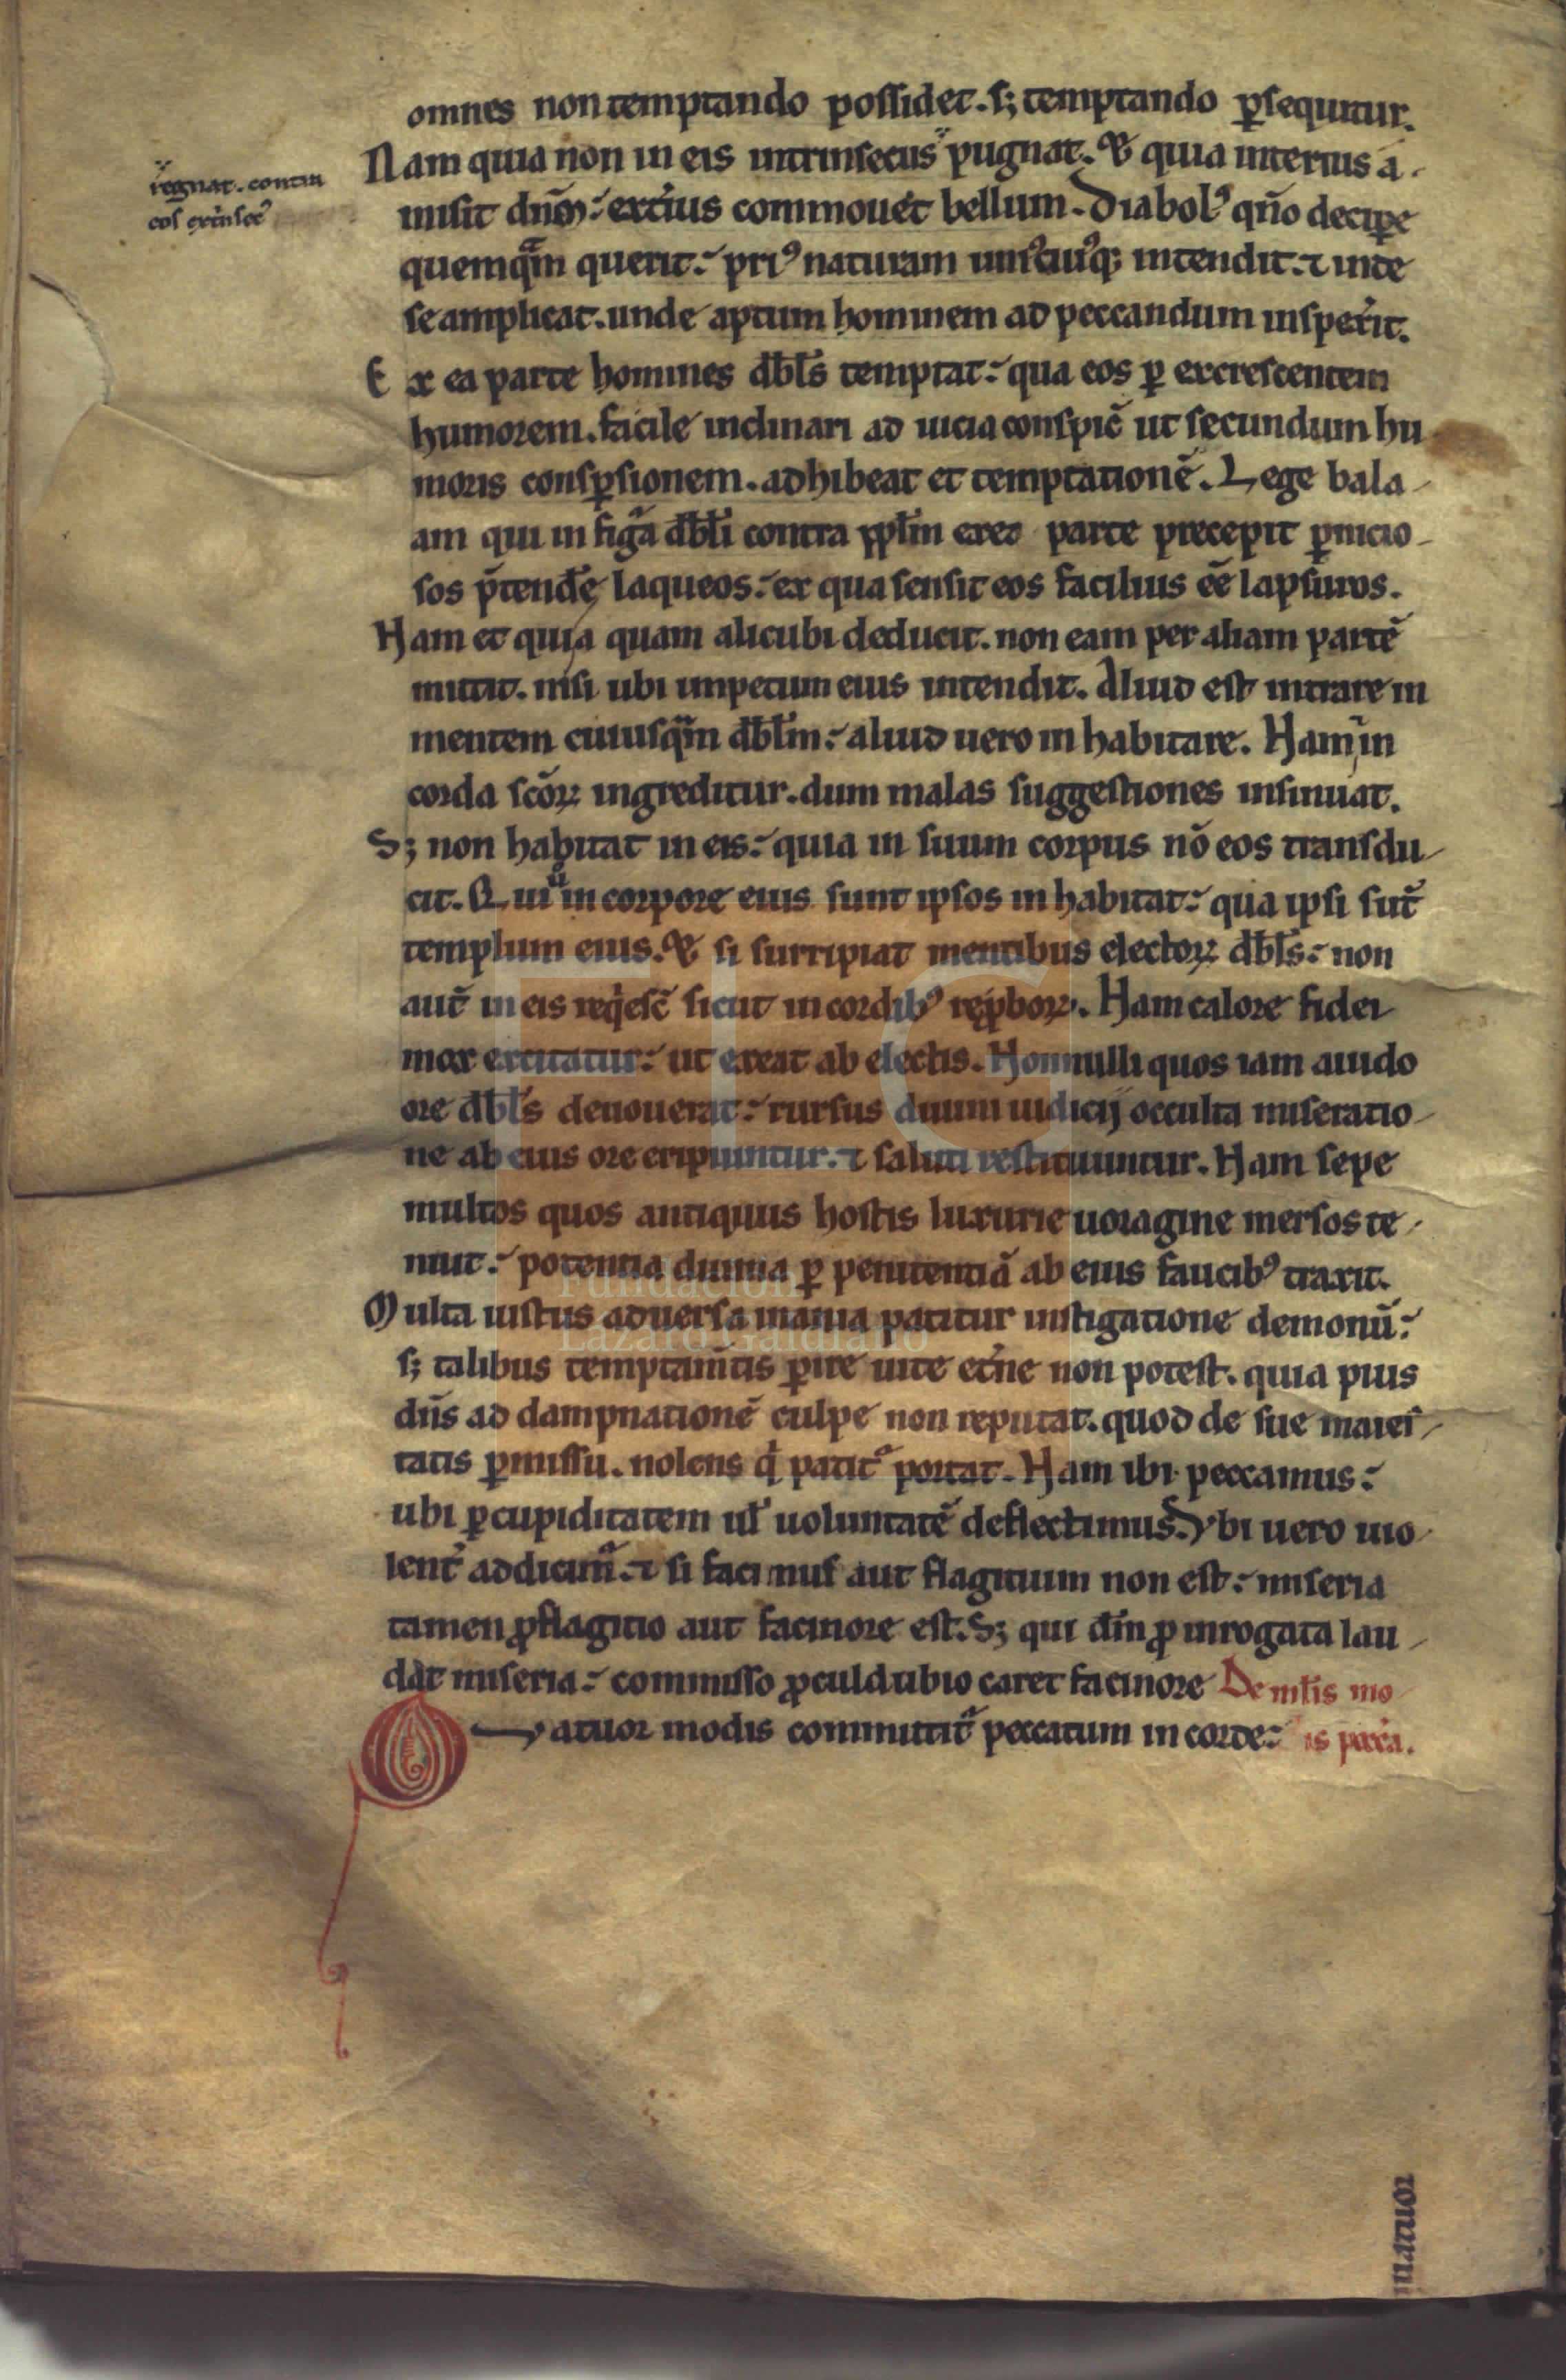 omnes non temptando possidet. s; temptando ꝑsequitur.
Nam quia non in eis intrinsecus pugnat. & quia interius a-
misit dn̄m: exti̾us commouet bellum. Diabolꝰ qn̄o deciꝑe
quemqᵃm querit: priꝰ naturam uniꝰcuiꝰq; intendit. ⁊ inde
se amplicat. unde aptum hominem ad peccandum inspexit.
Ex ea parte homines dbl̄s temptat: qua eos ꝑ excrescentem
humorem. facile inclinari ad uicia conspic̄ ut secundum hu
moris consꝑsionem. adhibeat et temptationē. Lege bala-
am qui in figᵃa dbl̄i contra ppl̄m ex ea parte precepit ꝑnicio-
sos p̄tendē laqueos: ex qua sensit eos facilius eē lapsuros.
Nam et qui a quam alicubi deducit. non eam per aliam partē
mittit. nisi ubi impetum eius intendit. Aliud est intrare in
mentem cuiusqᵃm dbl̄m: aliud uero inhabitare. Nam in
corda scōꝝ ingreditur. dum malas suggestiones insinuat.
S; non habitat in eis: quia in suum corpus nō eos transdu-
cit. Qui ů in corpore eius sunt ipsos inhabitat: qua ipsi sut̄
templum eius. & si surripiat mentibus electoꝝ dbl̄s: non
aut̄ in eis reqͥesc̄ sicut in cordibꝰ reꝓboꝝ. Nam calore fidei
mox excitatur: ut exeat ab electis. Nonnulli quos iam auido
ore dbl̄s deuouerat: rursus diuini iudicij occulta miseratio-
ne ab eius ore eripiuntur. ⁊ saluti restituuntur. Nam sepe
multos quos antiquus hostis luxurie uoragine mersos te-
nuit: potentia diuina ꝑ penitentiā ab eius faucibꝰ traxit.
Multa iustus aduersa in anima patitur instigatione demonū:
s; talibus temptam̄tis ꝑire uite et̾ne non potest. quia pius
dn̄s ad dampnationē culpe non reputat. quod de sue maies-
tatis ꝑmissu. nolens qͥ patitᵃ portat. Nam ibi peccamus:
ubi ꝑ cupiditatem ul̄ uoluntatē deflectimus. Vbi uero uio-
lent̾ addicimᵃ. ⁊ si facinus aut flagitium non est: miseria
tamen ꝓ flagitio aut facinore est. S; qui dm̄ ꝓ inrogata lau-
dat miseria: commisso ꝓculdubio caret facinore De ml̄tis mo-
Qatuor modis committitᵃ peccatum in corde: is pecca.
ů
regnat. contra
eos extrinsecꝰ
uatuor
Fundación
Lázaro Galdiano